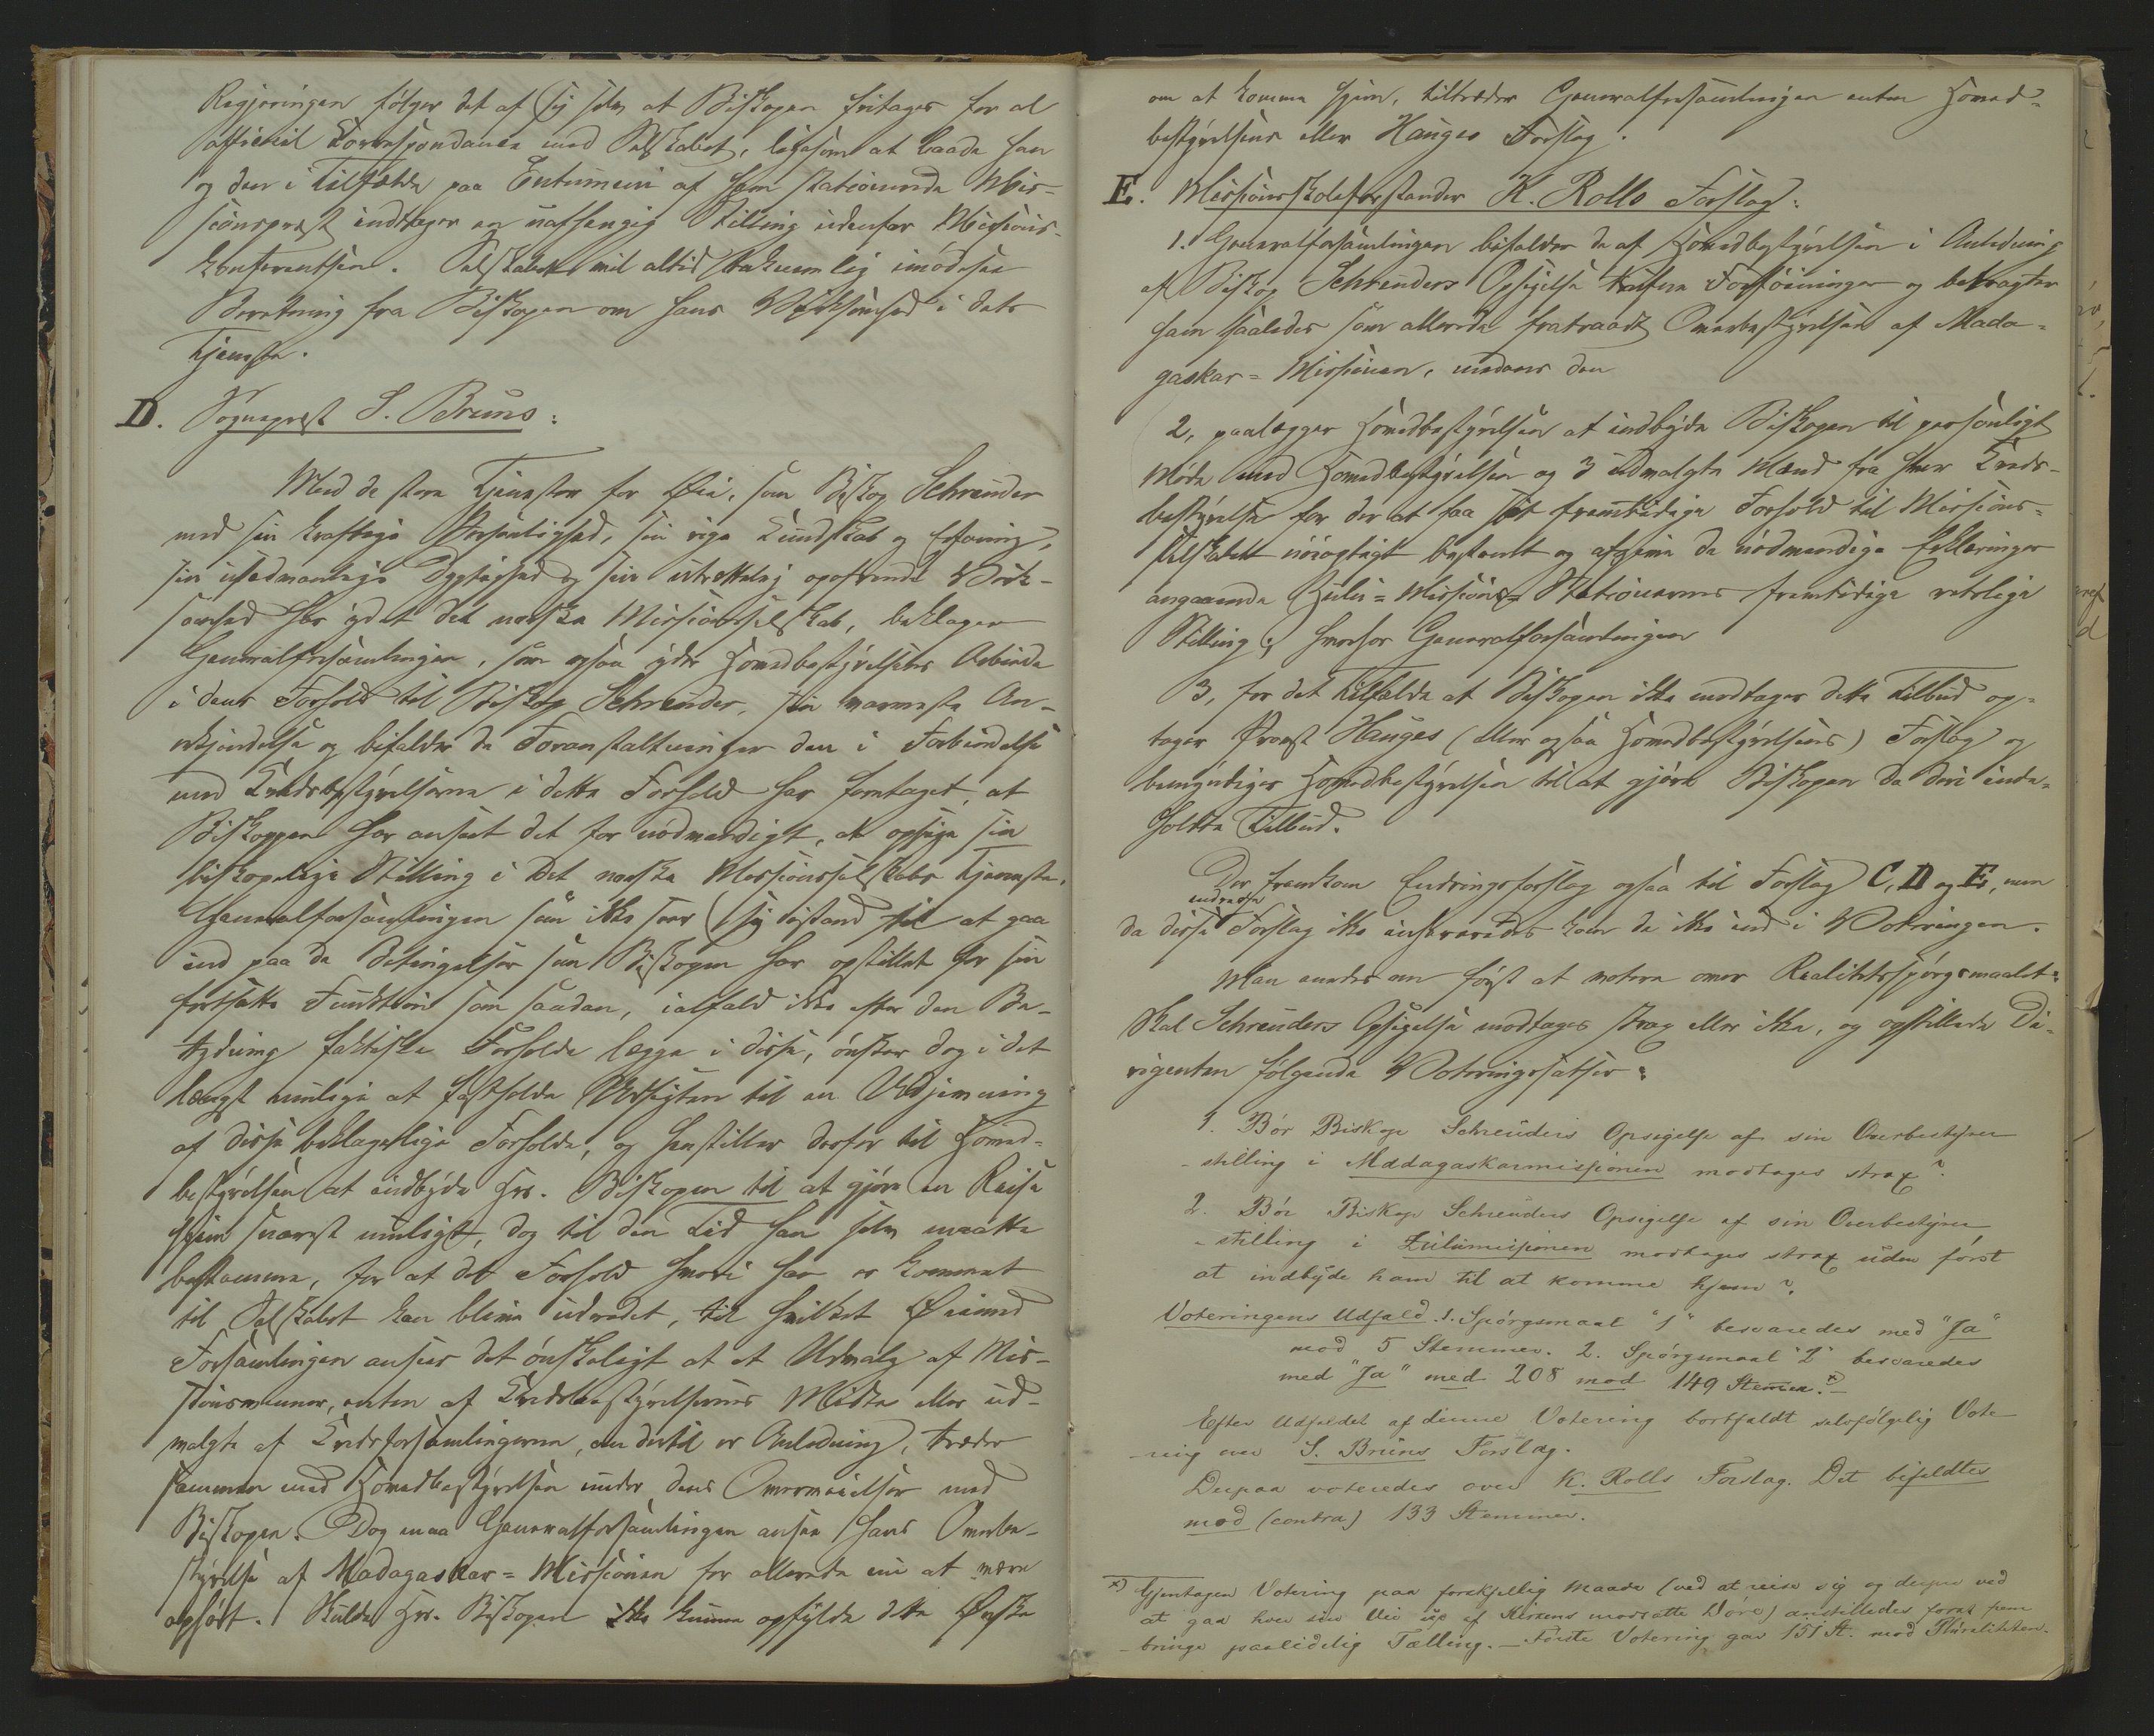 Regjeringen følger det af sig selv at Biskopen fritages for al
officiel Korrespondance med Selskabet, ligesom at baade han
og den i Tilfælde paa Entumeni af ham stationerede Mis-
sionsprest indtager en uafhengig Stilling udenfor Missions-
konferentsen. Selskabet vil altid taknemlig imødese
Beretning fra Biskopen om hans Virksomhed i dets
Tjeneste.
D. Sogneprest S. Bruns:
Med de store Tjenester for Øie, som Biskop Schreuder
med sin kraftige Personlighed, sin rige Kundskab og Erfaring,
sin usedvanlige Dygtighed og sin utrettelig opofrende Virk-
somhed har ydet det norske Missionsselskab, beklager
Generalforsamlingen, som ogsaa yder Hovedbestyrelsens Arbeide
i dens Forhold til Biskop Schreuder, sin varmeste An-
erkjendelse og bifalder de Foranstaltninger den i Forbindelse
med Kredsbestyrelserne i dette Forhold har foretaget, at
Biskoppen har anseet det for nødvendigt, at opsige sin
biskopelige Stilling i Det norske Missionsselskabs Tjeneste.
Generalforsamlingen som ikke seer sig istand til at gaa
ind paa de Betingelser som Biskopen har opstillet for sin
fortsatte Funktion som saadan, ialfald ikke efter den Be-
tydning faktiske Forholde lægge i disse, ønsker dog i det
længst mulige at fastholde Udsigten til en Udjevning
af disse beklagelige Forholde, og henstiller derfor til Hoved-
bestyrelsen at indbyde Hrr. Biskopen til at gjøre en Reise
hjem snarest muligt, dog til den Tid han selv maatte
bestemme, for at det Forhold hvori han er kommet
til Selskabet kan blive udredet, til hvilket Øiemed
Forsamlingen anseer det ønskeligt at et Udvalg af Mis-
sionsvenner, enten af Kredsbestyrelsernes Midte eller ud-
valgte af Kredsforsamlingerne, om dertil er Anledning, træder
sammen med Hovedbestyrelsen under dens Overveielser med
Biskopen. Dog maa Generalforsamlingen ansee hans Overbe-
styrelse af Madagaskar-Missionen for allerede nu at være
ophørt. Skulde Hrr. Biskopen ikke kunne opfylde dette Ønske
om at komme hjem, tiltræder Generalforsamlingen enten Hoved-
bestyrelsens eller Hauges Forslag.
E. Missionsskoleforstander K. Rolls Forslag:
1. Generalforsamlingen bifalder de af Hovedbestyrelsen i Anledning
af Biskop Schreuders Opsigelse trufne Forføininger og betragter
ham saaledes som allerede fratraadt Overbestyrelsen af Mada-
gaskar-Missionen, medens den
2, paalægger Hovedbestyrelsen at indbyde Biskopen til personligt
Møde med Hovedbestyrelsen og 3 udvalgte Mænd fra hver Kreds-
bestyrelse for der at faa sit fremtidige Forhold til Missions-
selskabet nøiagtigt bestemt og afgive de nødvendige Erklæringer
angaaende Zulu-Missions-Stationernes fremtidige retslige
Stilling; hvorhos Generalforsamlingen
3, for det Tilfælde at Biskopen ikke modtager dette Tilbud op-
tager Provst Hauges (eller ogsaa Hovedbestyrelsens) Forslag og
bemyndiger Hovedbestyrelsen til at gjøre Biskopen de deri inde-
holdte Tilbud.
Der fremkom Endringsforslag ogsaa til Forslag C, D og E, men
da disse endrede Forslag ikke kom de ikke ind i Voteringen.
Man enedes om først at votere over Realitetsspørgsmaalet:
Skal Schreuders Opsigelse modtages strax eller ikke, og opstillede Di-
rigenten følgende Voteringssatser:
1. Bør Biskop Schreuders Opsigelse af sin Overbestyrer
-stilling i Madagaskarmissionen modtages strax?
2. Bør Biskop Schreuders Opsigelse af sin Overbestyrer
-stilling i Zulumissionen modtages strax uden først
at indbyde ham til at komme hjem?
Voteringens Udfald. 1. Spørgsmaal "1" besvaredes med "Ja"
mod 5 Stemmer. 2. Spørgsmaal "2" besvaredes
med "Ja" med 208 mod 149 Stemmer. x)
Efter Udfaldet af denne Votering bortfaldt selvfølgelig Vote-
-ring over S. Bruns Forslag.
Derpaa voteredes over K. Rolls Forslag. Det bifaldtes
mod (contra) 133 Stemmer.
x) Gjentagen Votering paa forskjellig Maade (ved at reise sig og derpaa ved
at gaa hver sin Vei ud af Kirkens modsatte Døre) anstilledes forat frem
-bringe paalidelig Tælling. – Første Votering gav 151 St. mod Pluraliteten.